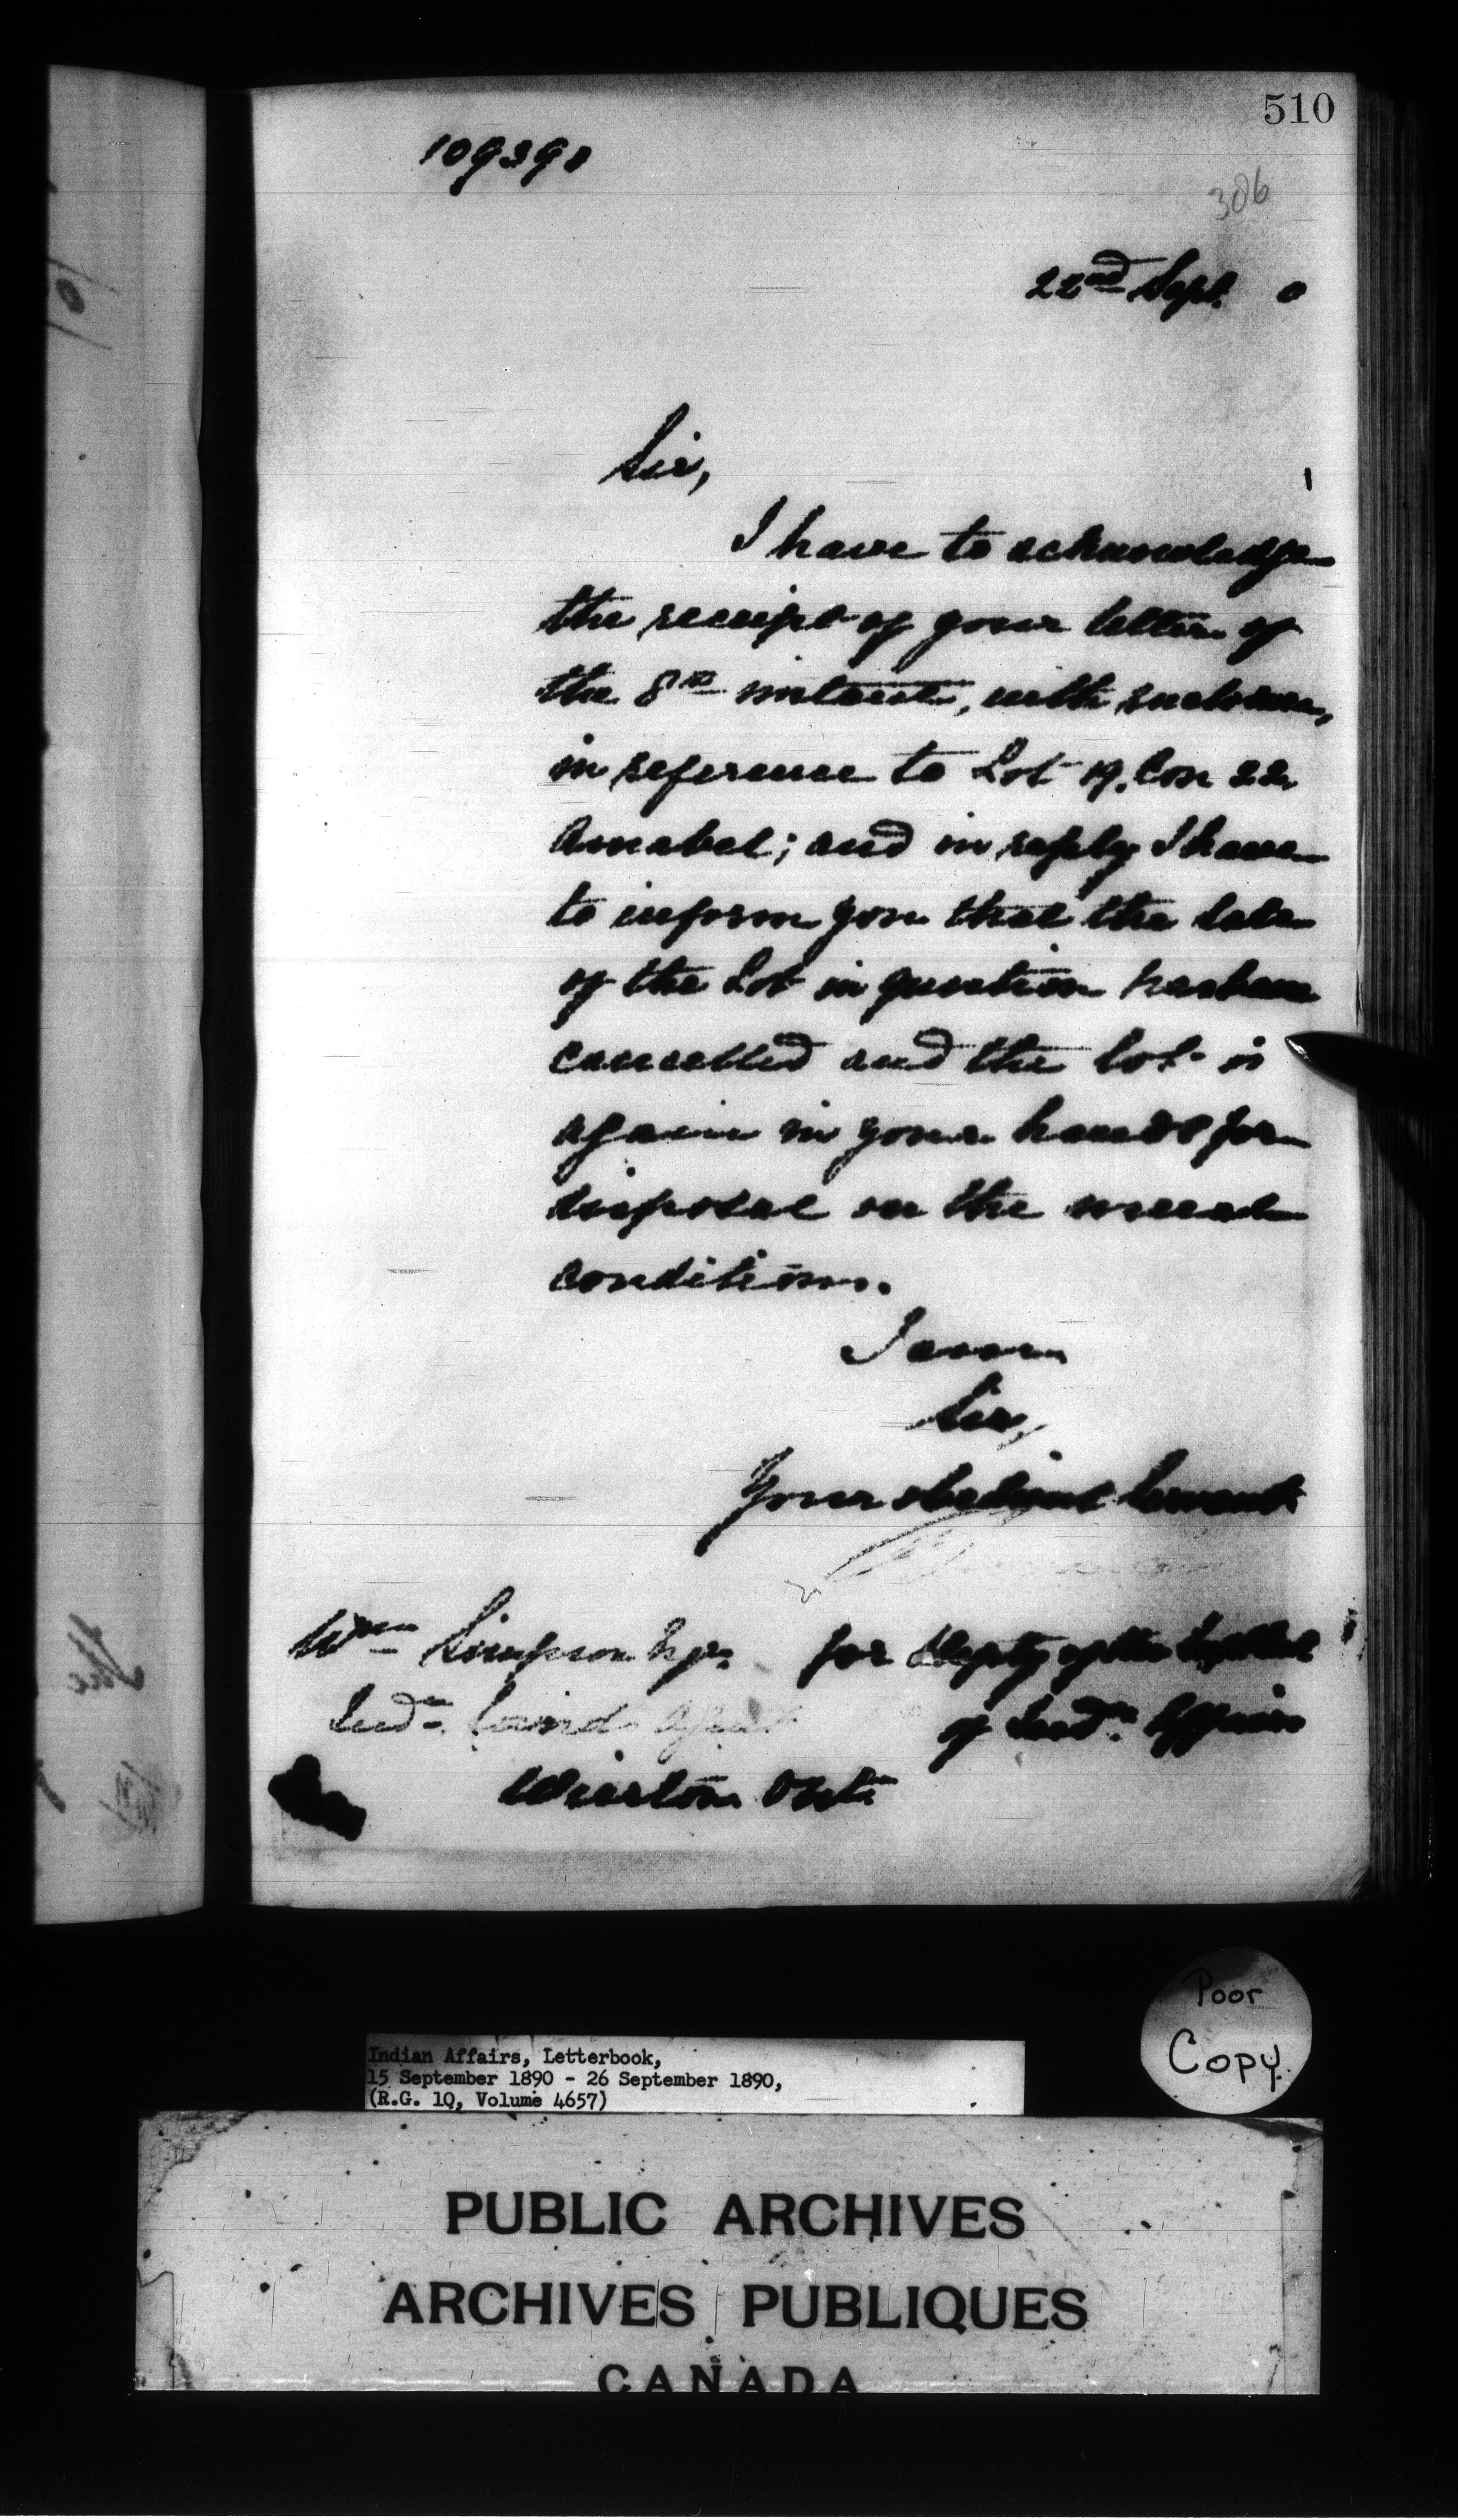 510
109390
306
22nd Sept. 0
Sir,
I have to acknowledge
the receipt of your letter of
the 8th instant, with enclosure,
in reference to Lot 19. Con 22.
Amabel; and in reply I have
to inform you that the sale
of the Lot in question has been
cancelled and the lot is
again in your hands for
disposal on the usual
conditions.
I am
Sir,
Your obedient Servant
Wm Simpson Esqr. for Depty of the Supt Genl
Indn. Land Agent of Indn. Affairs
Wiarton Ont.
Poor
Copy.
Indian Affairs, Letterbook,
15 September 1890 - 26 September 1890,
(R.G. 10, Volume 4657)
PUBLIC ARCHIVES
ARCHIVES PUBLIQUES
CANADA